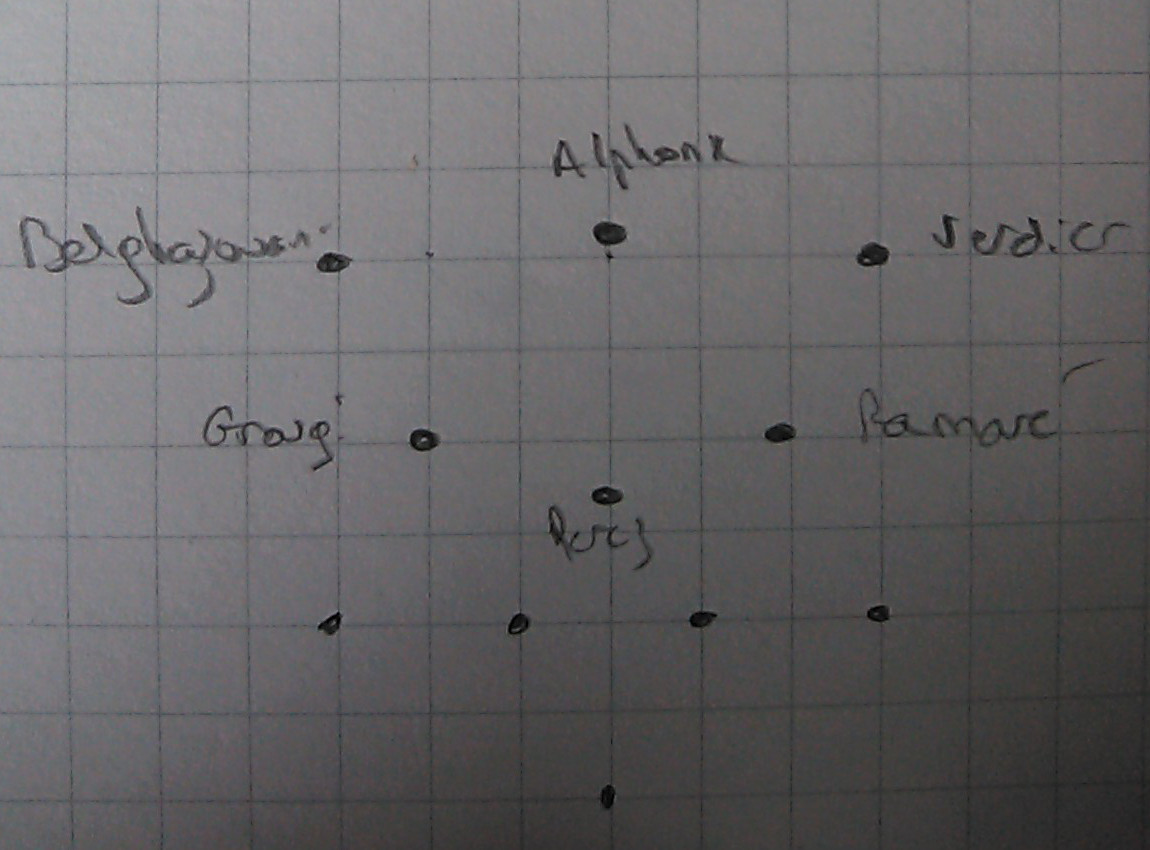 Alphonse
Belghazouani
Verdier
Grougi
Ramaré
Percy